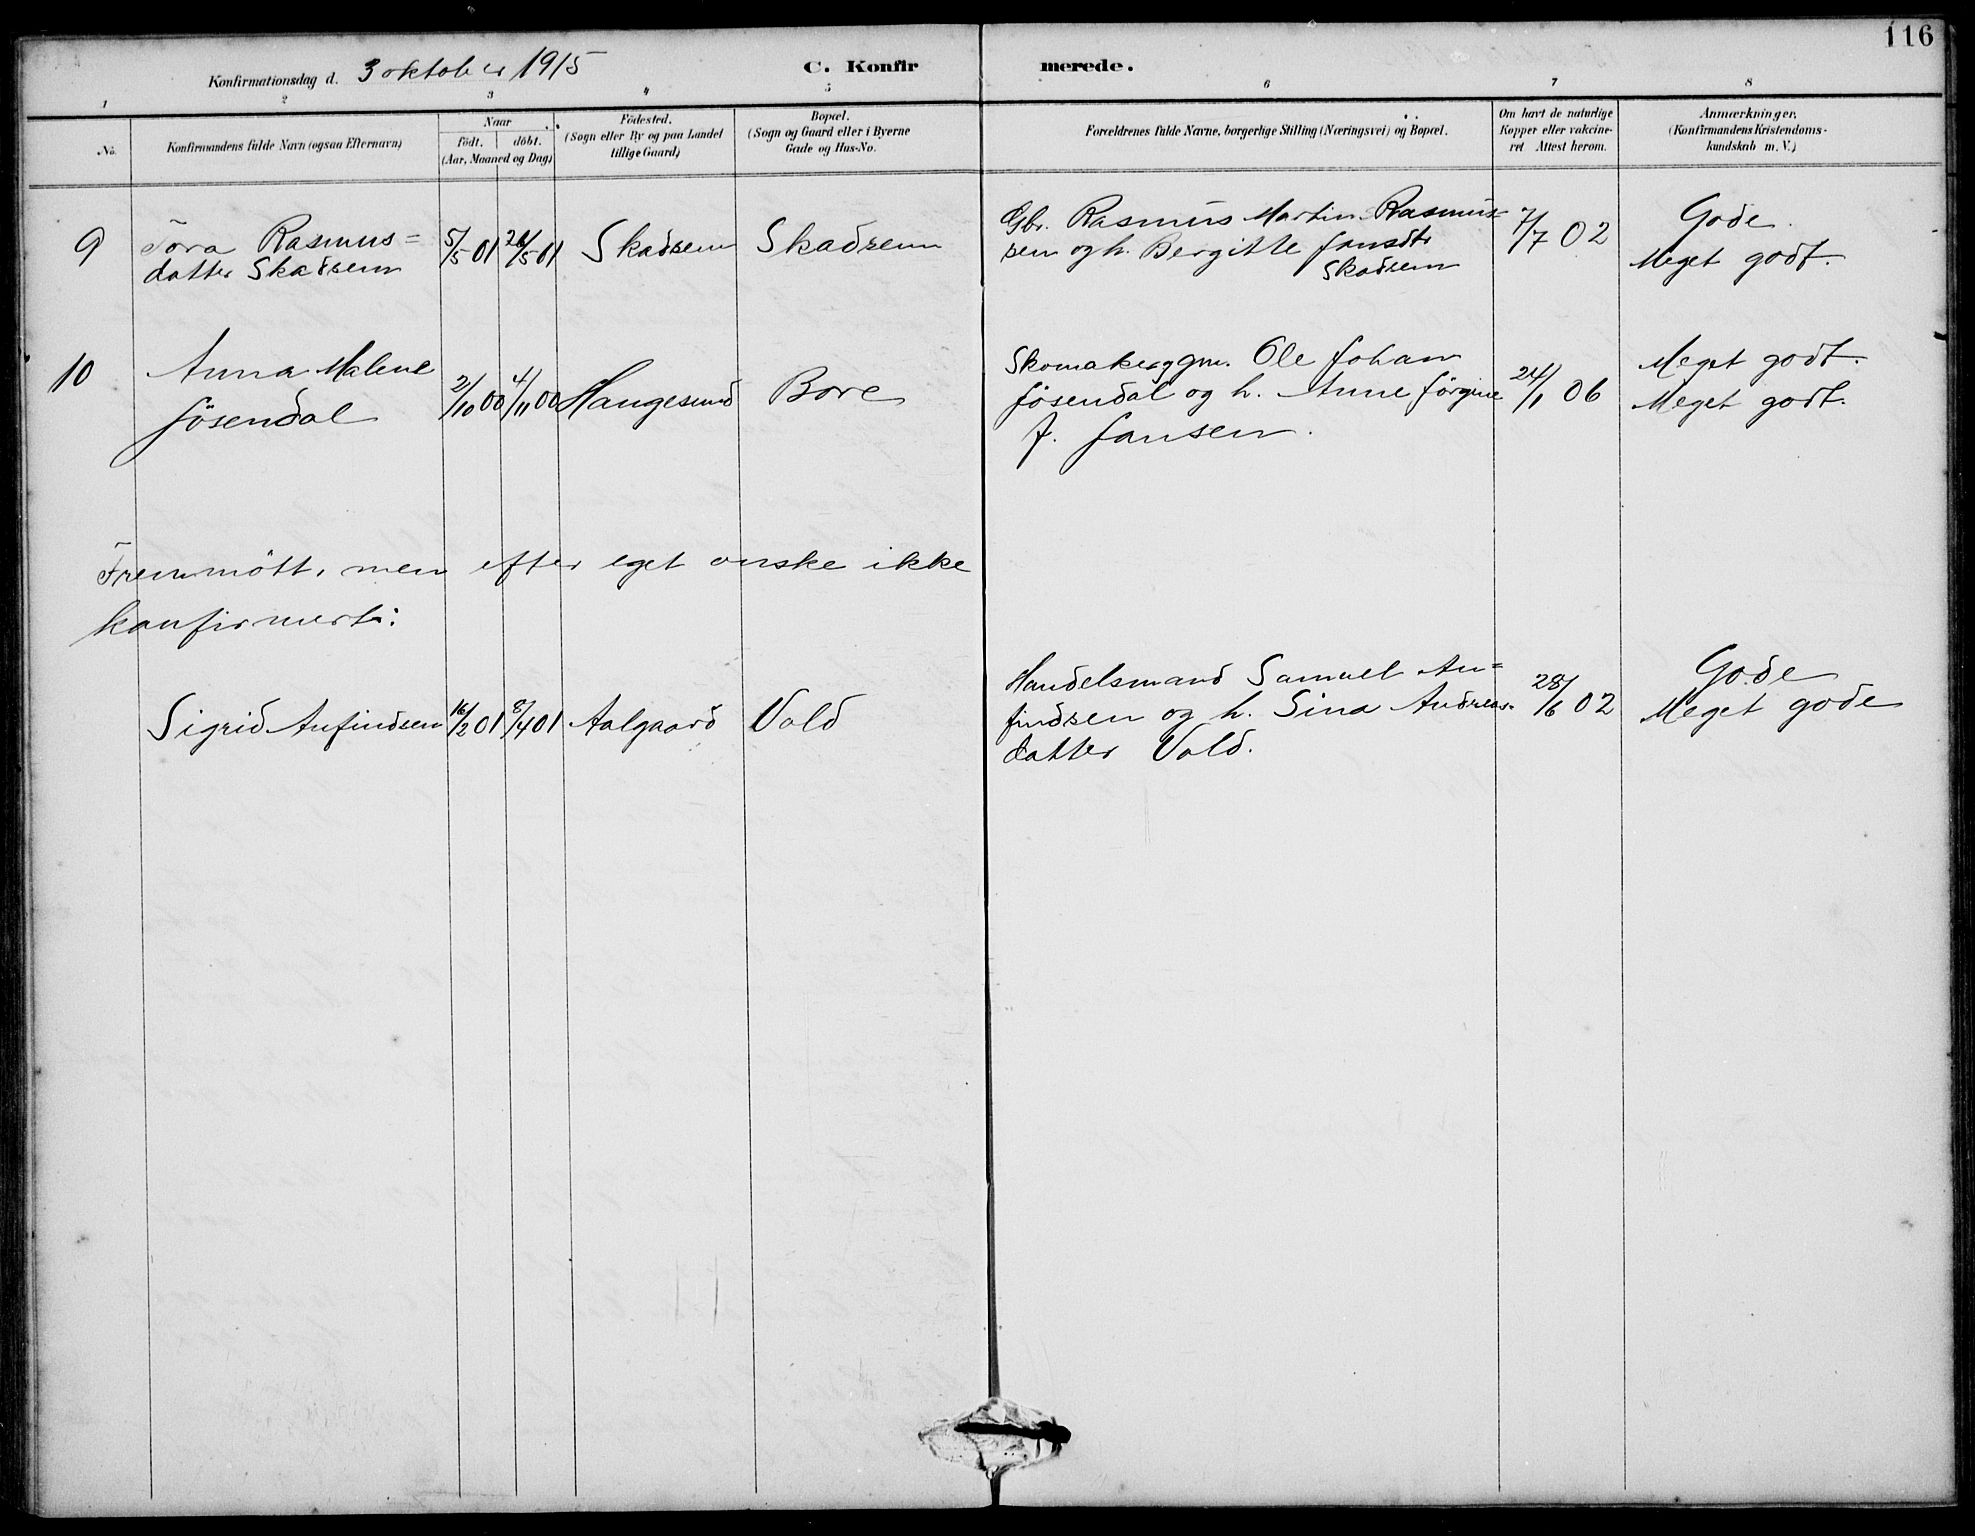 116
Konfirmationsdag d. 3 oktober 1915
C. Konfirmerede.
1 2 3 4 5 6 7 8
No.
Konfirmandens fulde Navn (ogsaa Efternavn)
Naar
födt. döbt.
(Aar, Maaned og Dag)
Födested.
(Sogn eller By og paa Landet
tillige Gaard)
Bopæl.
(Sogn og Gaard eller i Byerne
Gade og Hus-No.
Forældrenes fulde Navne, borgerlige Stilling (Næringsvei) og Bopæl.
Om havt de naturlige
Kopper eller vakcine-
ret Attest herom.
Anmærkninger.
(Konfirmandens Kristendoms-
kundskab m. V.)
9
Tora Rasmus=
datter Skadsem
5/5 01
26/5 01
Skadsem
Skadsem
Gbr. Rasmus Martin Rasmus=
sen og h. Bergitte Jansdtr
Skadsem
7/7 02
Gode.
Meget godt.
10
Anna Malene
Jösendal
2/10 00
4/11 00
Haugesund
Bore
Skomaker ggm. Ole Johan
Jösendal og h. Anne Jörgine
J. Jansen.
24/1 06
Meget godt.
Meget godt.
Fremmött, men efter eget onske ikke
konfirmert:
Sigrid Anfindsen
16/2 01
8/4 01
Aalgaard
Vold
Handelsmand Samuel An=
findsen og h. Sina Andreas-
datter Vold.
28/6 02
Gode
Meget gode